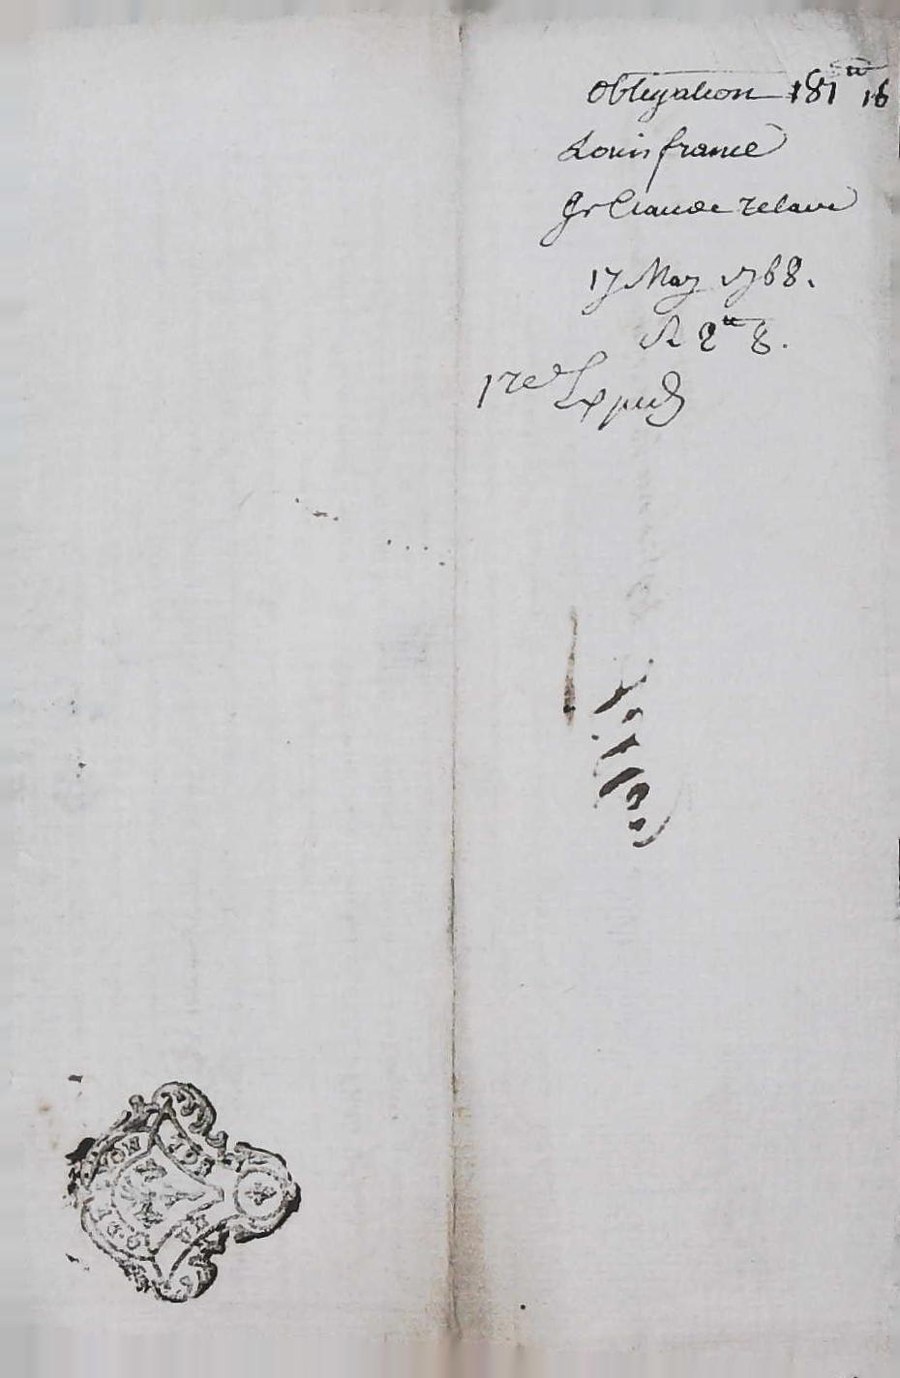 Obligation 181tt 16
Louis france
Pr Claude relave
17 May 1768.
R 2tt 8.
1re Exped